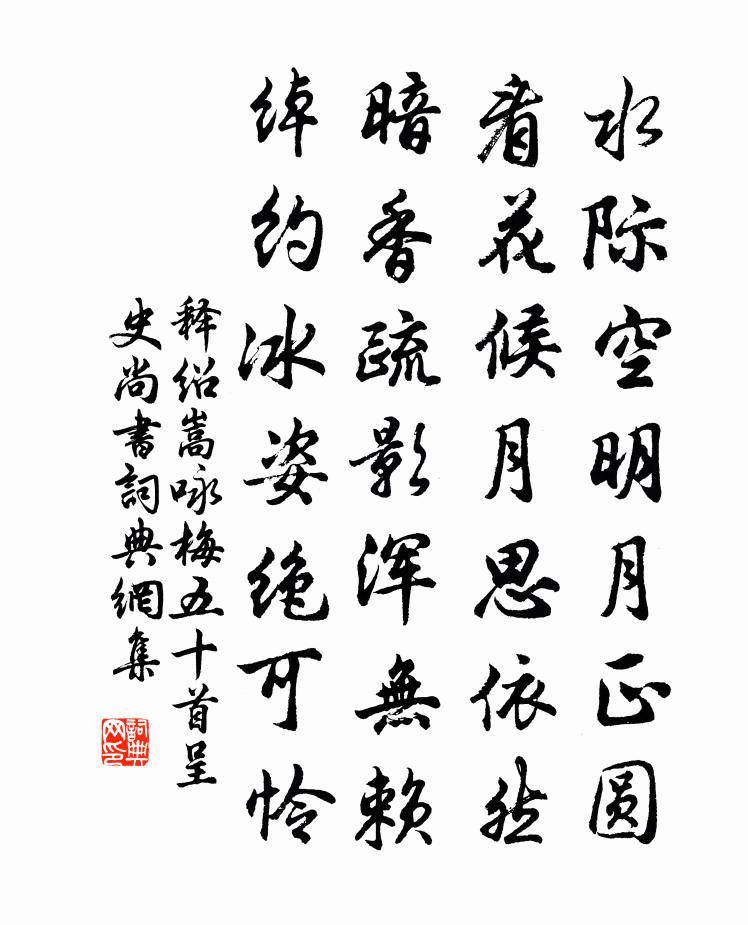 水际空明月正圆
看花候月思依然
暗香疏影浑無赖
绰约冰姿绝可怜
释绍嵩咏梅五十首呈
史尚書詞典網集
詞典网印